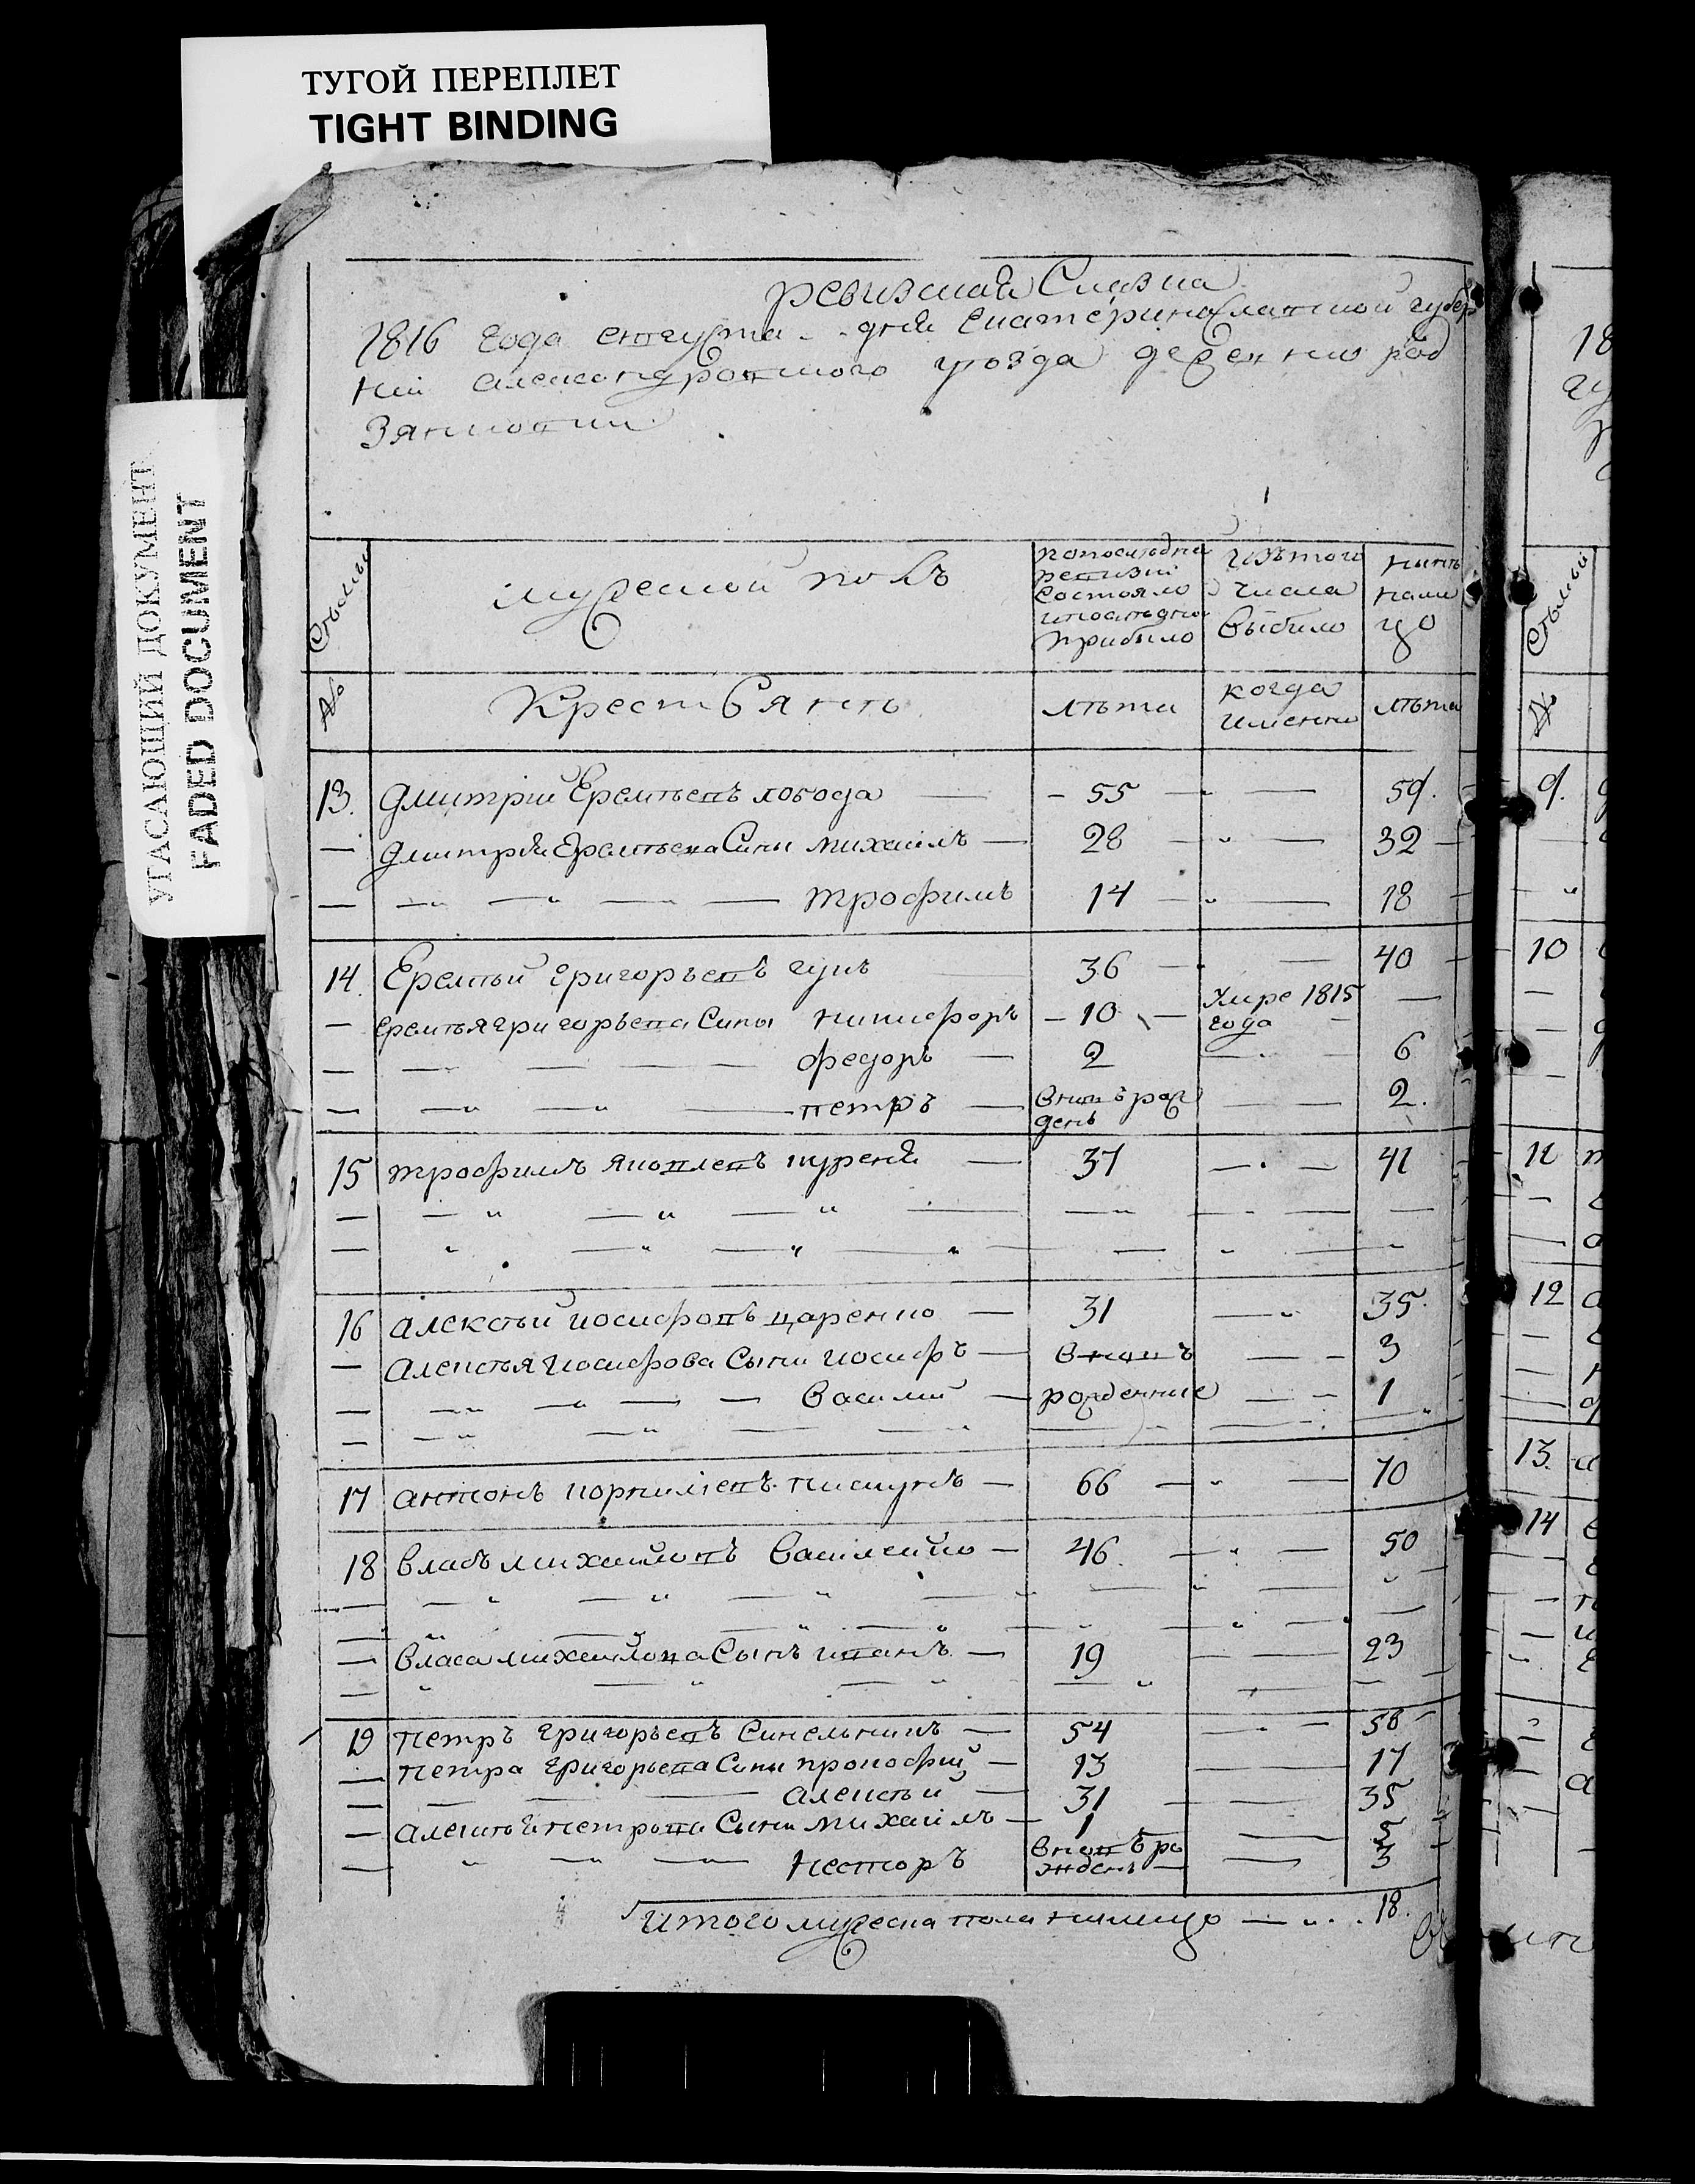 ТУГОЙ ПЕРЕПЛЕТ
TIGHT BINDING
УГАСАЮЩИЙ ДОКУМЕНТ
FADED DOCUMENT
ревизская Сказка
1816 года августа дня Екатеринославской губер
нии александровского уезда деревни
мужеской полъ
попоследней ревизии состояло ипоследне прибыло
изътого числа выбыло
ныне нали цо
№ Крестьянъ лѣта когда именно лѣта
13. Дмитрiй Еремѣевъ лобода — 55 — 59.
— Дмитрiя Еремѣева Сыны михаилъ — 28 — 32
— трофимъ 14 — 18
14. Еремѣй григорьевъ гунъ 36 — 40
— Еремѣя григорьева Сыны никифоръ — 10 — умре 1815 года —
— федоръ — 2 — 6
— петръ — вновь рож день — 2.
15 трофимъ яковлевъ — 37 — 41
16 алексѣй иосифовъ царенко — 31 — 35.
— Алексѣя иосифова Сыны иосифъ — вновъ — 3
— василий — рожденные — 1
17 антонъ — 66 — 70
18 власъ михайловъ василенко — 46. — 50
— власа михайлова Сынъ иванъ — 19 — 23
19 петръ григорьевъ Синельникъ — 54 — 58
— петра григорьева Сыны прокофий — 13 — 17
— алексѣй — 31 — 35
— алексѣя петрова Сыны михаилъ — 1 — 5
— несторъ вновъ ро ждень — 3
итого мужеска пола налицо — 18.
18
9.
10
11
12
13.
14